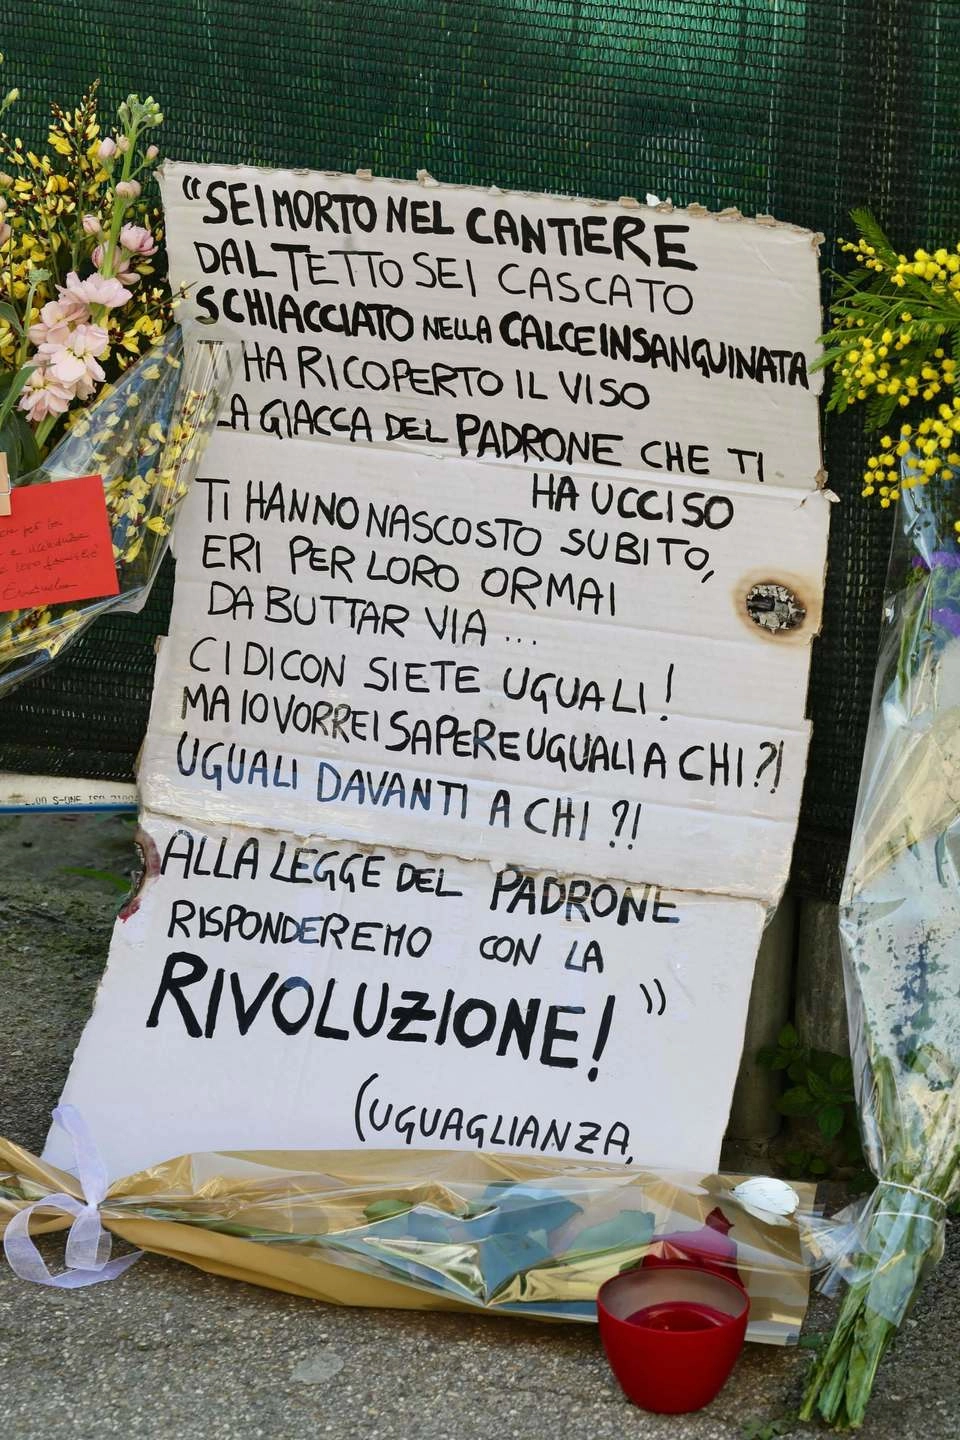 “SEI MORTO NEL CANTIERE
DAL TETTO SEI CASCATO
SCHIACCIATO NELLA CALCE INSANGUINATA
HA RICOPERTO IL VISO
LA GIACCA DEL PADRONE CHE TI
HA UCCISO
TI HANNO NASCOSTO SUBITO,
ERI PER LORO ORMAI
DA BUTTAR VIA ...
CI DICON SIETE UGUALI!
MA IO VORREI SAPERE UGUALI A CHI?!
UGUALI DAVANTI A CHI?!
ALLA LEGGE DEL PADRONE
RISPONDEREMO CON LA
RIVOLUZIONE!”
(UGUAGLIANZA,
per
Emanuela
S-ONE ISO